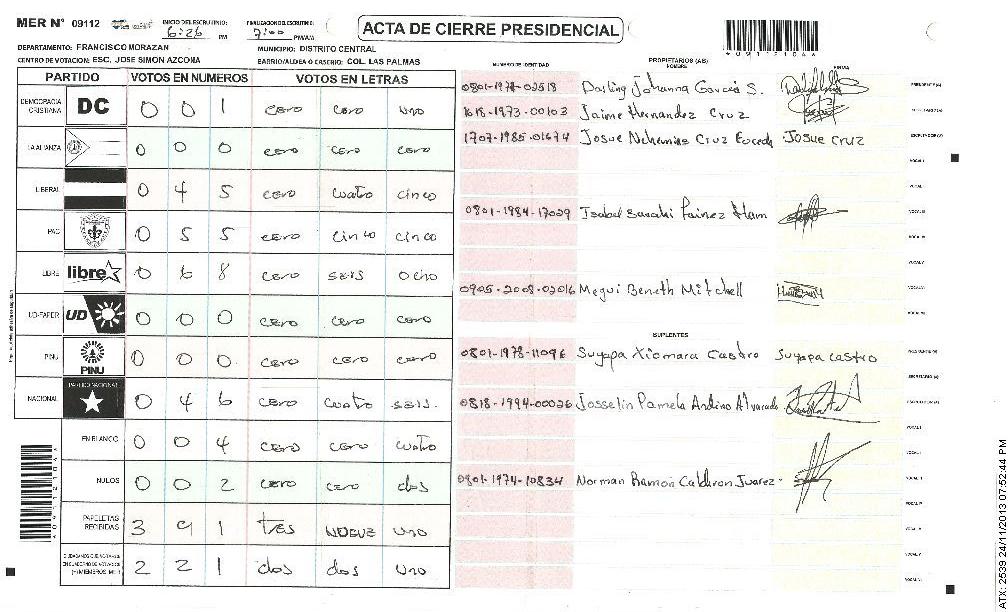 MER N° 09112
INICIO DEL ESCRUTINIO: 6:26 PM
FINALIZACION DEL ESCRUTINIO: 7:00 PM/A/A
ACTA DE CIERRE PRESIDENCIAL
DEPARTAMENTO: FRANCISCO MORAZAN
MUNICIPIO: DISTRITO CENTRAL
CENTRO DE VOTACION: ESC. JOSE SIMON AZCONA
BARRIO/ALDEA O CASERIO: COL. LAS PALMAS
PARTIDO VOTOS EN NUMEROS VOTOS EN LETRAS
DEMOCRACIA CRISTIANA DC 0 0 1 cero cero uno
LA ALIANZA 0 0 0 cero cero cero
LIBERAL 0 4 5 cero cuatro cinco
PAC 0 5 5 cero cinco cinco
LIBRE libre 0 6 8 cero seis ocho
UD-FAPER UD 0 0 0 cero cero cero
PINU PINU 0 0 0 cero cero cero
NACIONAL PARTIDO NACIONAL 0 4 6 cero cuatro seis
EN BLANCO 0 0 4 cero cero cuatro
NULOS 0 0 2 cero cero dos
PAPELETAS RECIBIDAS 3 9 1 tres nueve uno
2 2 1 dos dos uno
NUMERO DE IDENTIDAD PROPIETARIOS (AS) NOMBRE FIRMA
0801-1978-02518 Darling Johanna Garcia S. PRESIDENTE (A)
1618-1973-00103 Jaime Hernandez Cruz SECRETARIO (A)
1707-1985-01674 Josue Nehemias Cruz Josue cruz ESCRUTADOR (A)
0801-1984-17029 Isabel Sarahi
0905-2008-02016 Megui Beneth Mitchell
SUPLENTES
0801-1978-11096 Suyapa Xiomara Castro Suyapa castro PRESIDENTE (A)
SECRETARIO (A)
0818-1994-00026 Josselin Pamela Andino Alvarado ESCRUTADOR (A)
0801-1974-10834 Norman Ramon Calderon Juarez
ATX: 2539 24/11/2013 07:52:44 PM